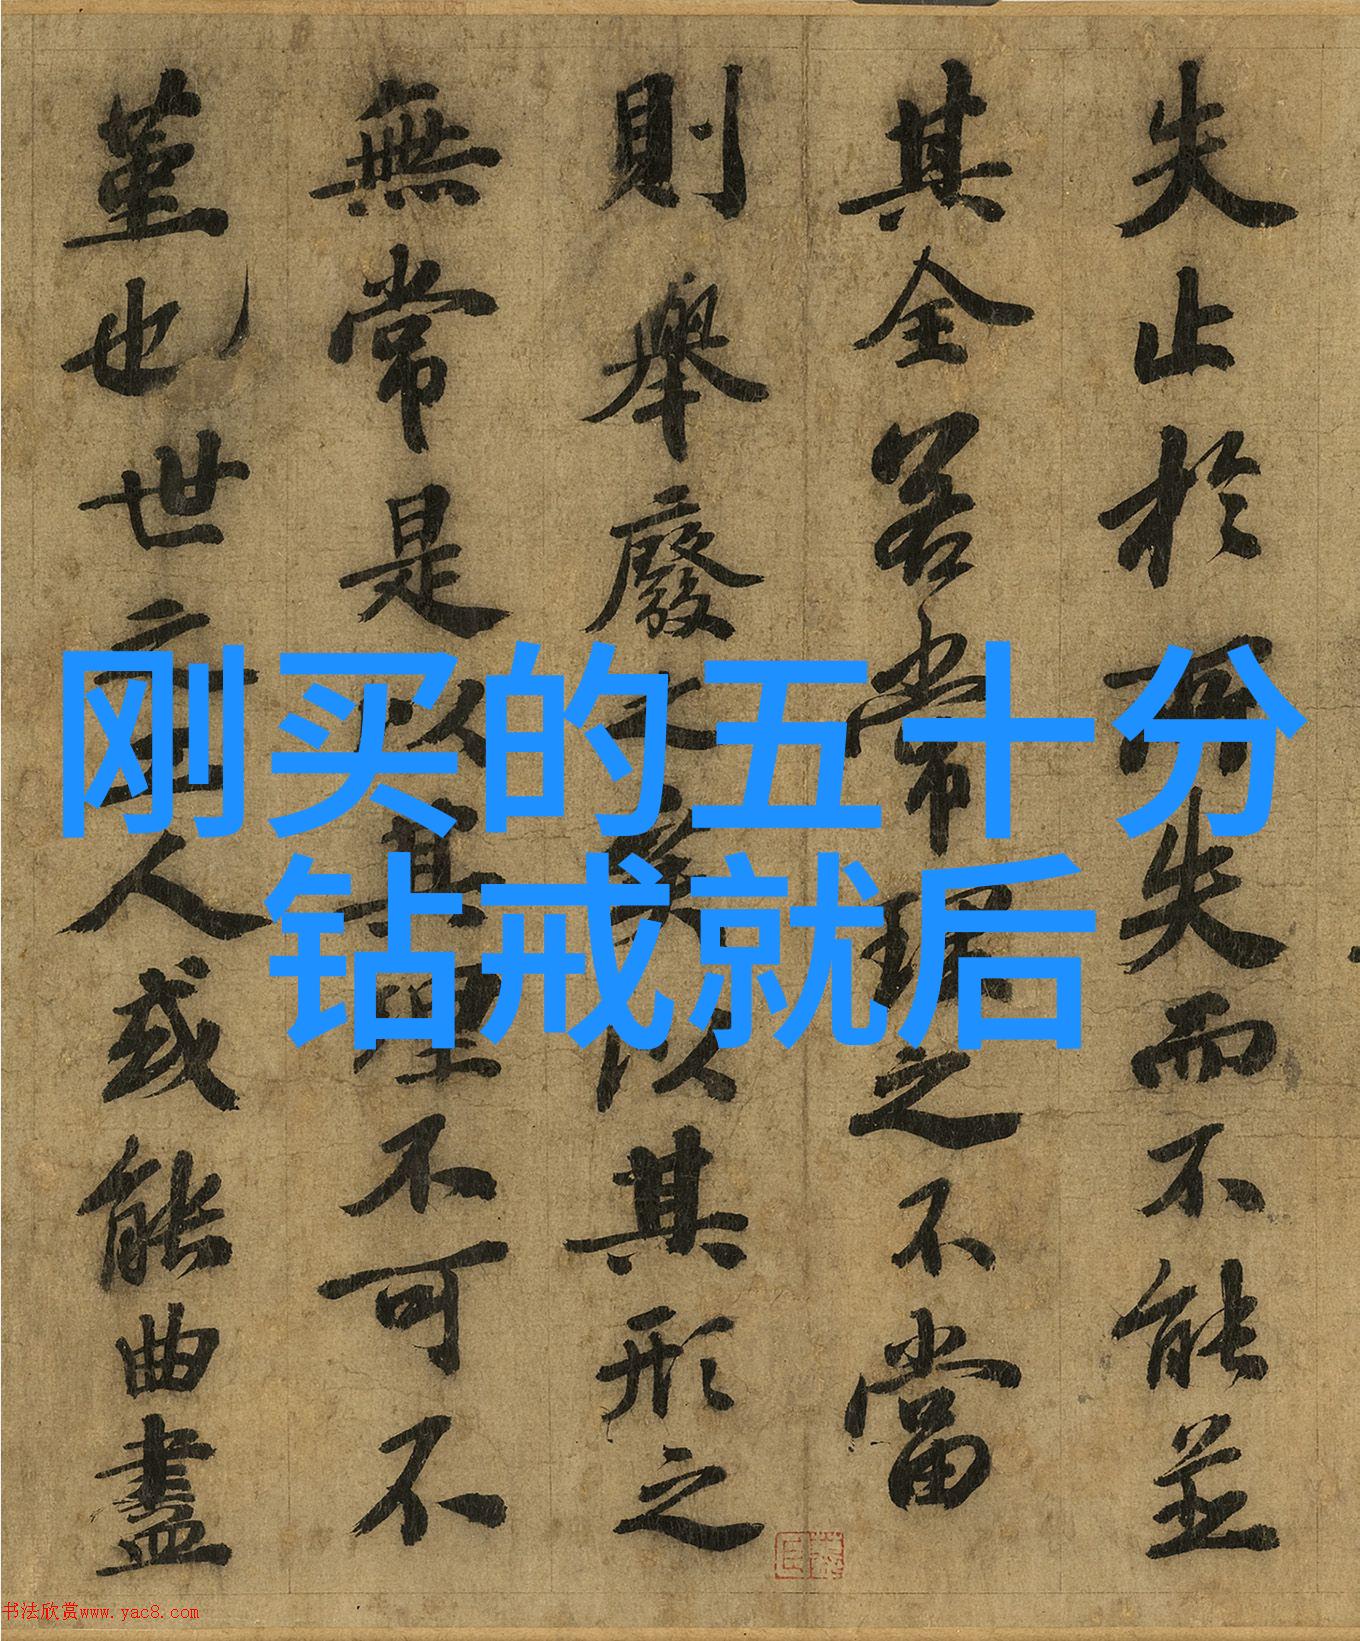 失止於所失而不能並
其全若常理之不當
則舉廢之矣以其形之
無常是以其理不可不
堇也世之工人或能曲盡
刚买的五十分
钻戒就后
书法欣赏www.yac8.com